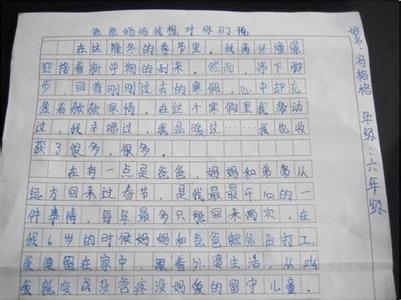 爸爸妈妈我想对你们说
在这隆冬的季节里，我满怀憧憬
迎接着新学期的到来。然而，停下脚
步，回首刚刚过去的寒假，心中却充
满着依依深情。在这个寒假里我激动
过，我幸福过，我忐忑过……我也收
获了很多，很多。
在有一点是爸爸，妈妈和弟弟从
远方回来过春节，是我最最开心的一
件事情，每年最多只能回来两次。在
我6岁的时候妈妈和爸爸就外出打工，
我便留在家中，跟着外婆生活，从此
我就变成没爸疼没妈爱的留守儿童。
年级：六年级